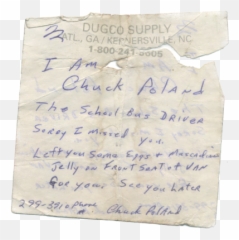 DUGCO SUPPLY
ATL, GA / KERNERSVILLE, NC
1-800-241-8605
I Am
Chuck Poland
The School Bus DRIVER
Sorry I missed you.
Left you Some Eggs + Muscadine
Jelly on Front Seat of Van
For you. See you Later
phone
Chuck Poland